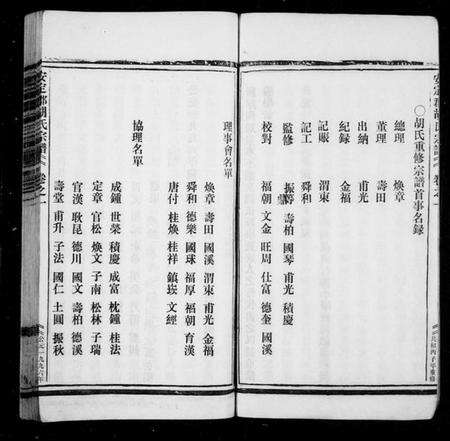 胡氏重修宗譜首事名錄
總理 煥章
董理 壽田
出納 甫光
紀錄 金福
記賬 渭東
記工 舜和
監修 振 壽柏 國琴 甫光 積慶
校對 福朝 文金 旺周 仕富 德奎 國溪
理事會名單
煥章 壽田 國溪 渭東 甫光 金福
舜和 德樂 國球 福厚 福朝 育漢
唐付 桂煥 桂祥 鎮 文經
協理名單
成鍾 世榮 積慶 成富 枕鍾 桂法
定章 官松 煥文 子南 松林 子瑞
官漢 耿昆 德川 國文 壽柏 德溪
壽堂 甫升 子法 國仁 土圓 振秋
安定郡胡氏宗譜 卷之一